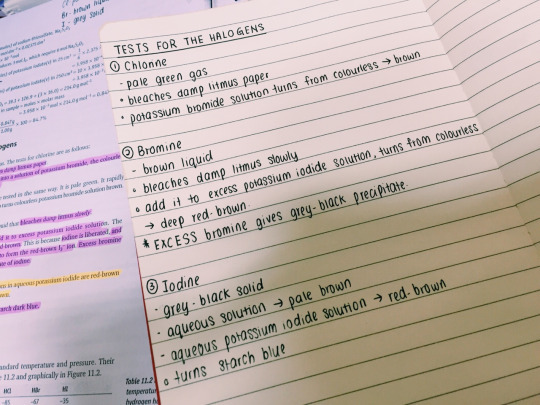 Br brown liquid
I - grey solid
TESTS FOR THE HALOGENS
① Chlorine
- pale green gas
• bleaches damp litmus paper
• potassium bromide solution turns from colourless → brown
② Bromine
- brown liquid
• bleaches damp litmus slowly
• add it to excess potassium iodide solution, turns from colourless
→ deep red-brown
* EXCESS bromine gives grey-black precipitate.
③ Iodine
- grey-black solid
- aqueous solution → pale brown
- aqueous potassium iodide solution → red-brown
• turns starch blue
ogens
. The tests for chlorine are as follows:
damp litmus paper
a solution of potassium bromide, the colourle
ested in the same way. It is pale green. It rapidly
turns colourless potassium bromide solution brown.
bleaches damp litmus slowly
to excess potassium iodide solution. The
This is because iodine is liberated, and
to form the red-brown I₃⁻ ion. Excess bromine
of iodine.
in aqueous potassium iodide are red-brown
own.
starch dark blue.
andard temperature and pressure. Their
11.2 and graphically in Figure 11.2.
HCl HBr HI
-85 -67 -35
Table 11.2
temperatur
hydrogen h